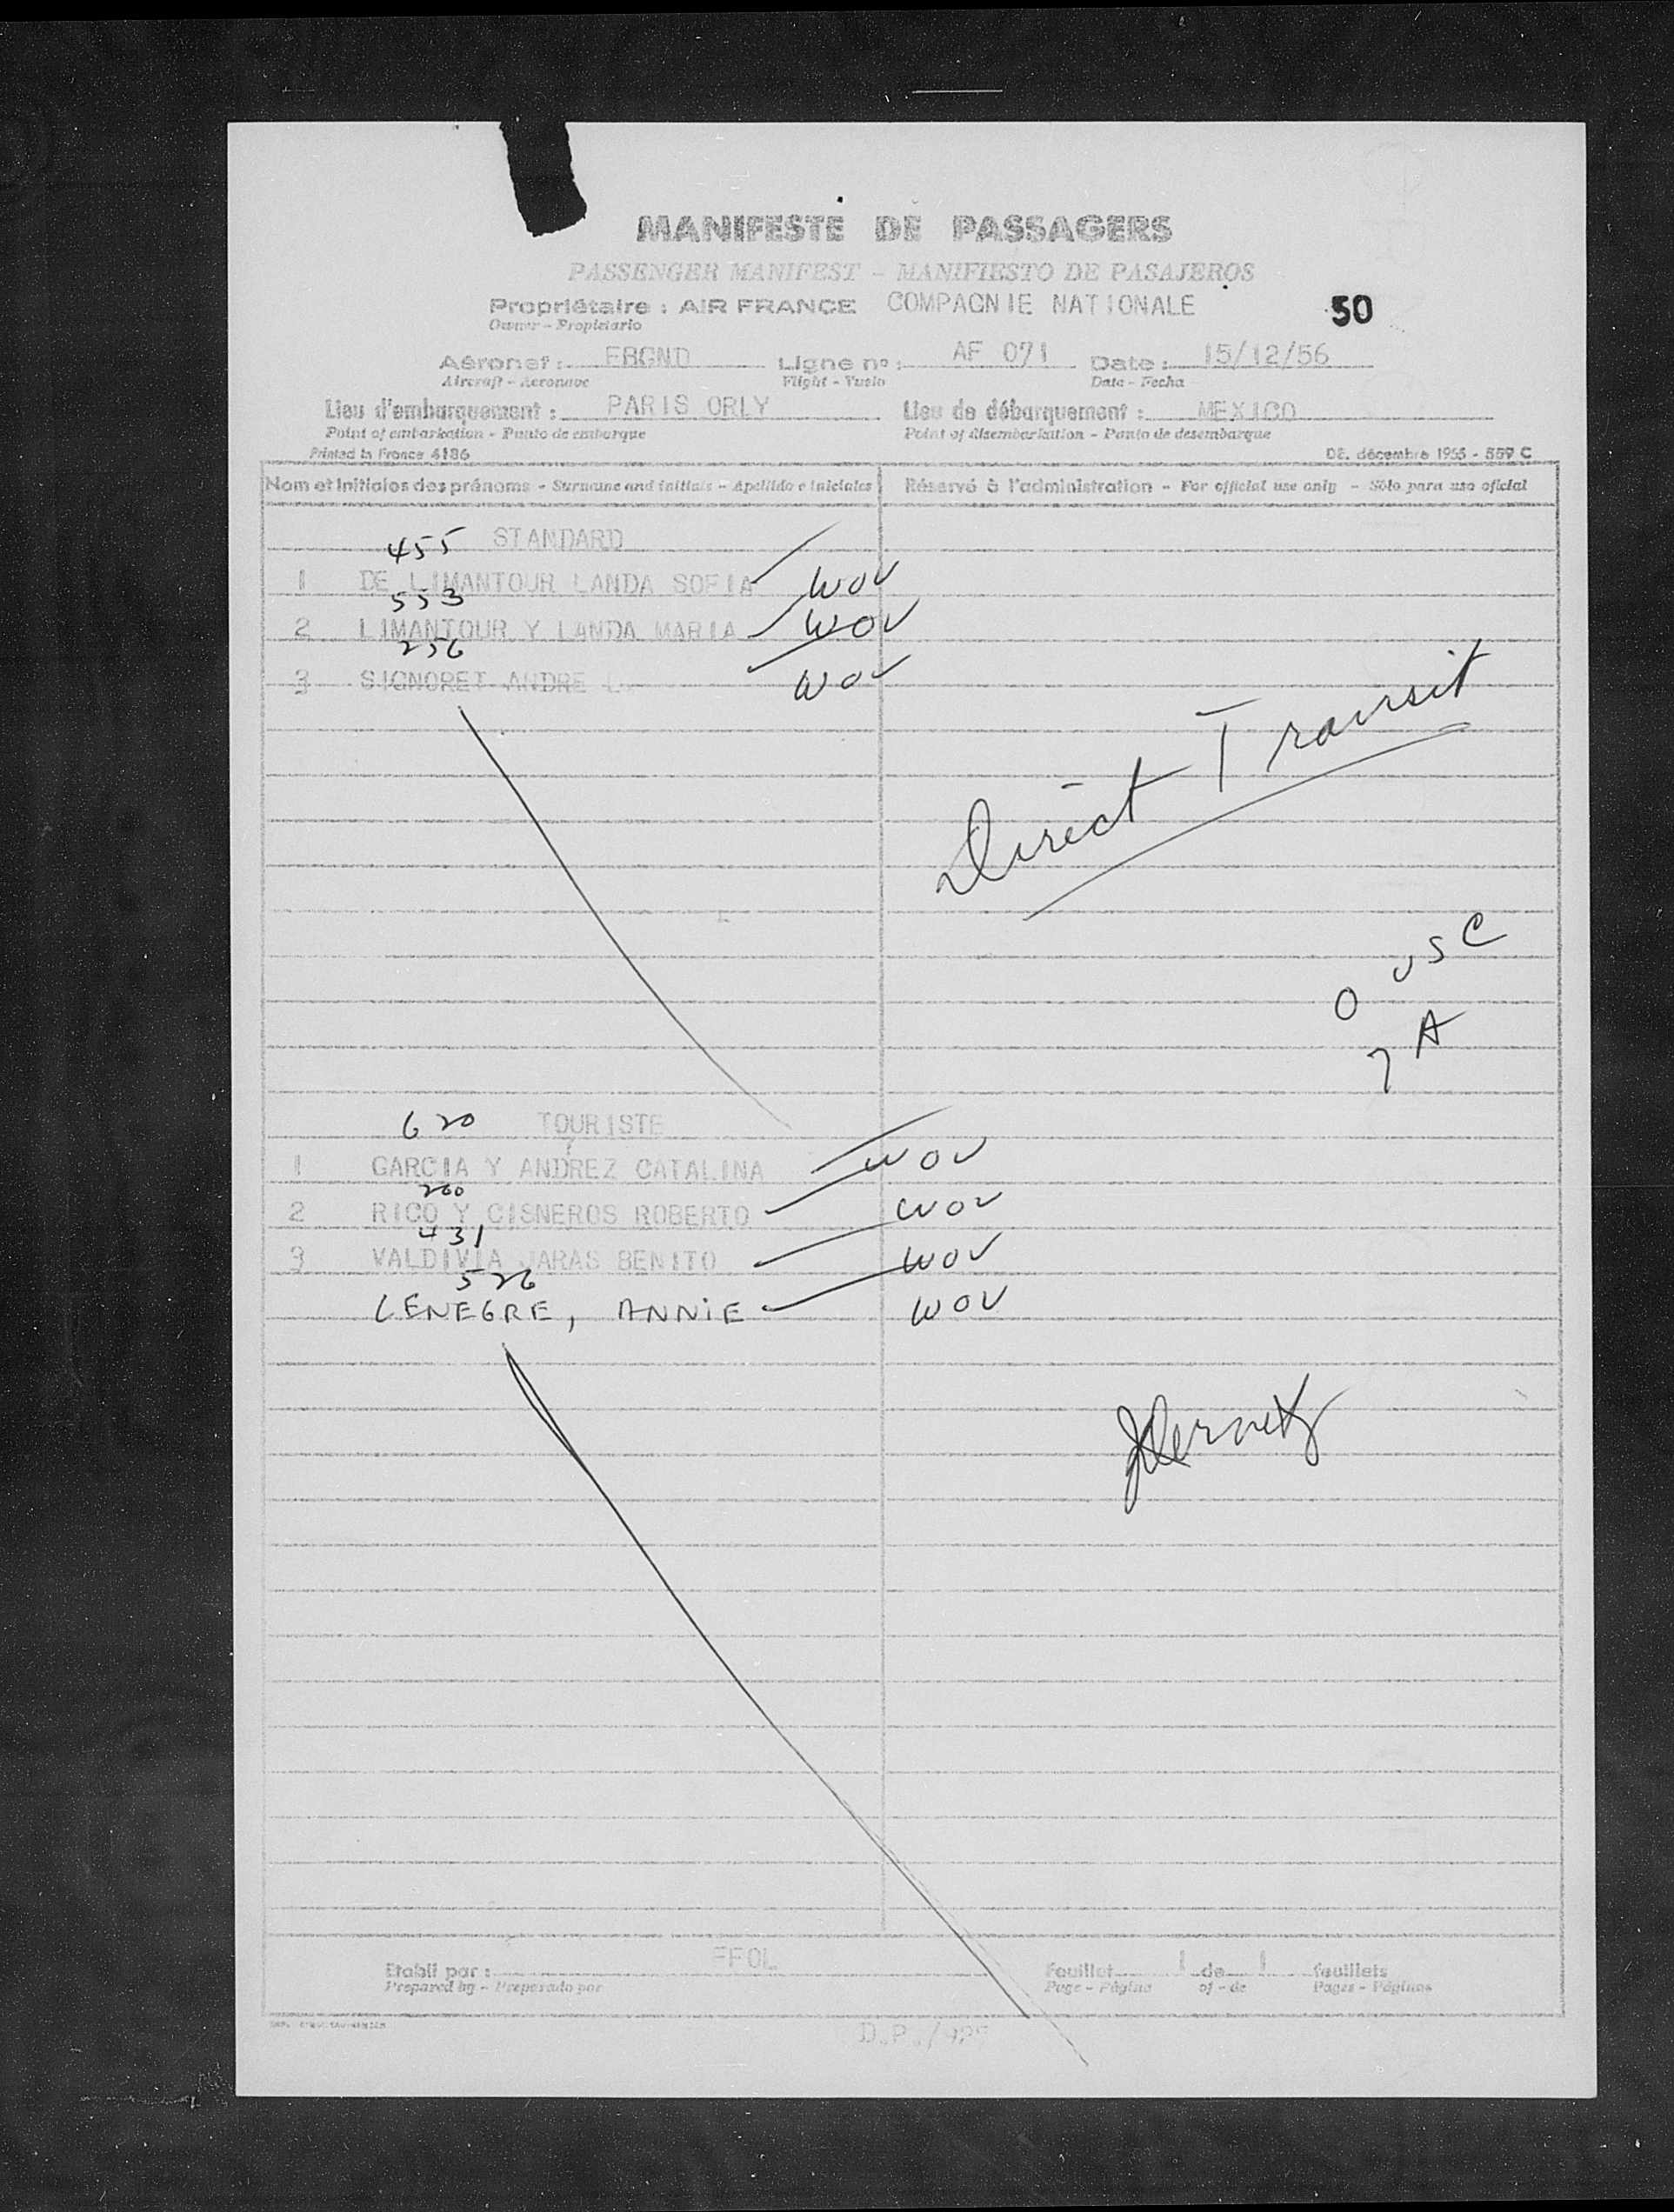 MANIFESTE DE PASSAGERS
PASSENGER MANIFEST - MANIFIESTO DE PASAJEROS
Propriétaire : AIR FRANCE COMPAGNIE NATIONALE 50
Owner - Propietario
Aéronef : FBGND Ligne nº : AF 071 Date : 15/12/56
Aircraft - Aeronave Flight - Vuelo Date - Fecha
Lieu d'embarquement : PARIS ORLY Lieu de débarquement : MEXICO
Point of embarkation - Punto de embarque Point of disembarkation - Punto de desembarque
Printed in France 4186 DE. décembre 1955 - 559 C
Nom et Initiales des prénoms - Surname and initials - Apellido e iniciales Réservé à l'administration - For official use only - Sólo para uso oficial
455 STANDARD
1 DE LIMANTOUR LANDA SOFIA WOV
553
2 LIMANTOUR Y LANDA MARIA WOV
256
3 SIGNORET ANDRE WOV
Direct Transit
0 USC
7 A
620 TOURISTE
1 GARCIA Y ANDREZ CATALINA WOV
260
2 RICO Y CISNEROS ROBERTO WOV
431
3 VALDIVIA JARAS BENITO WOV
526
LENEGRE, ANNIE WOV
Etabli par : FFOL Feuillet 1 de 1 feuillets
Prepared by - Preparado por Page - Página of - de Pages - Páginas